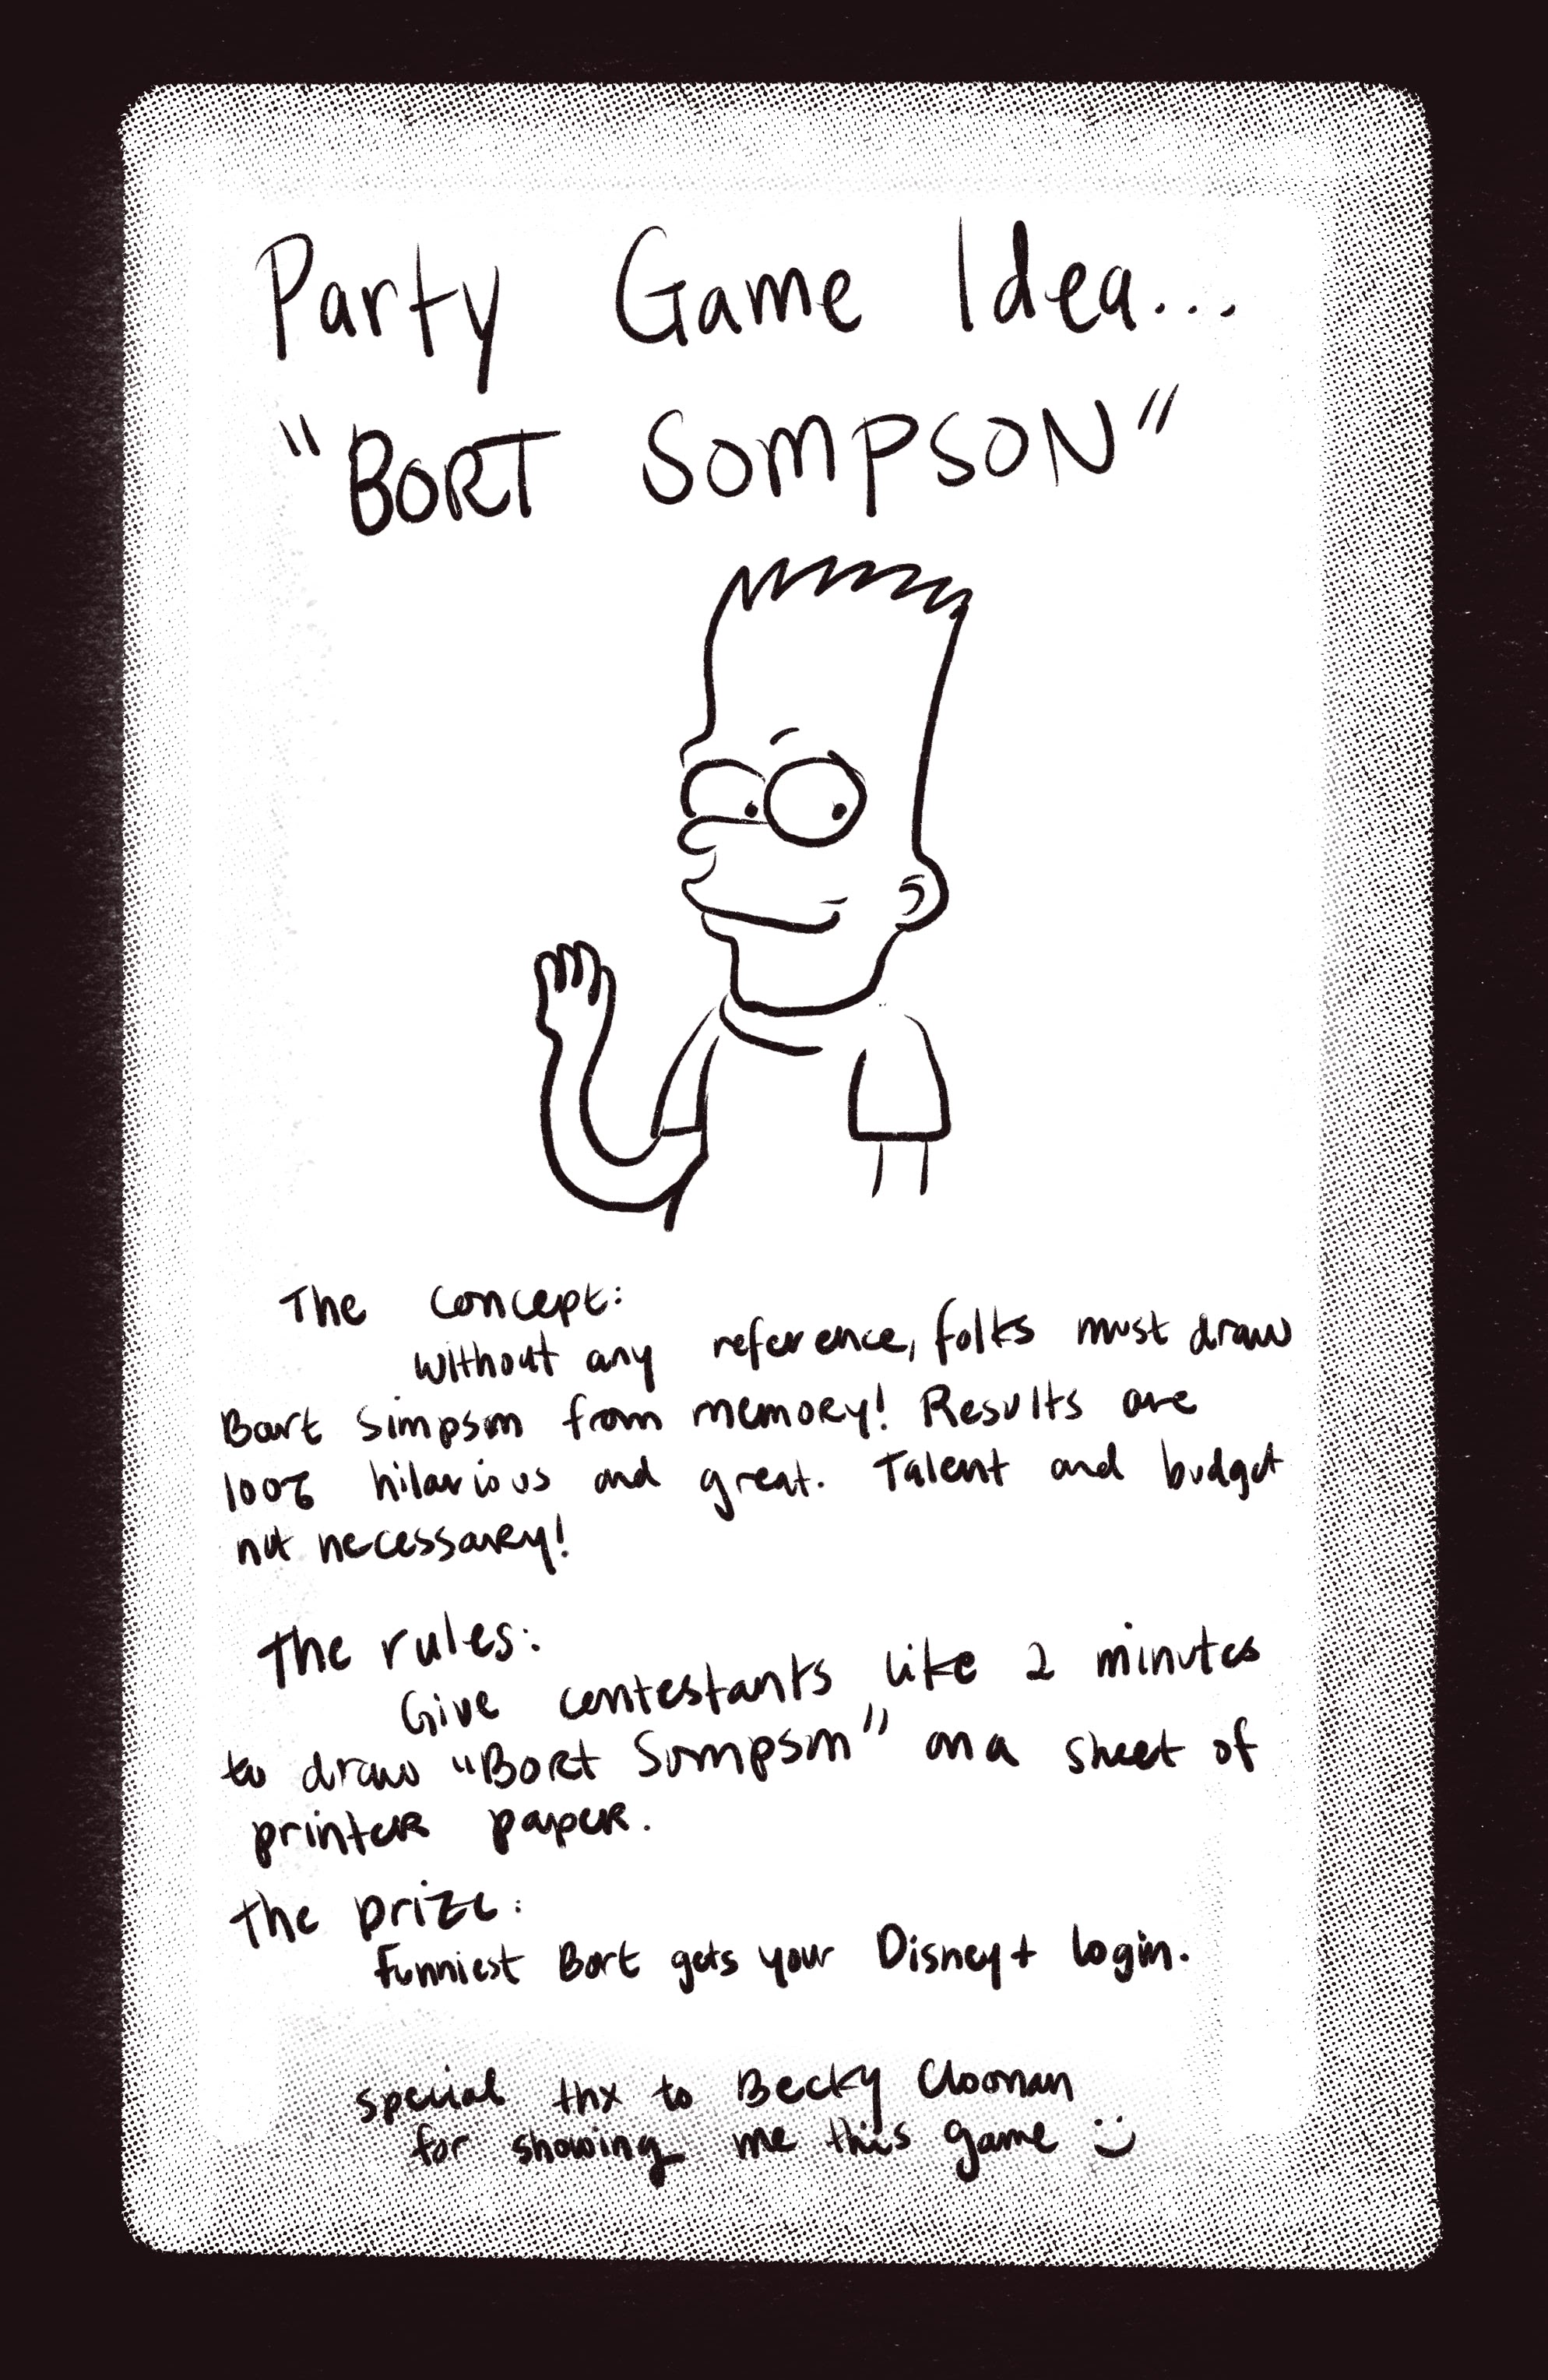 Party Game Idea...
"BORT SOMPSON"
The concept:
Without any reference, folks must draw
Bart Simpson from memory! Results are
100% hilarious and great. Talent and budget
not necessary!
The rules:
Give contestants like 2 minutes
to draw "Bort Sompson" on a sheet of
printer paper.
The prize:
Funniest Bort gets your Disney+ login.
special thx to Becky Cloonan
for showing me this game :)